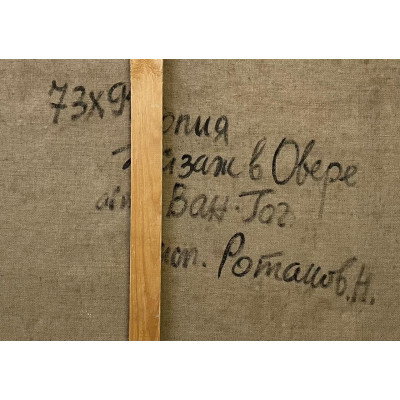 73х9 опия
йзаж в Овере
авт Ван-Гог.
исп. Ротанов.Н.